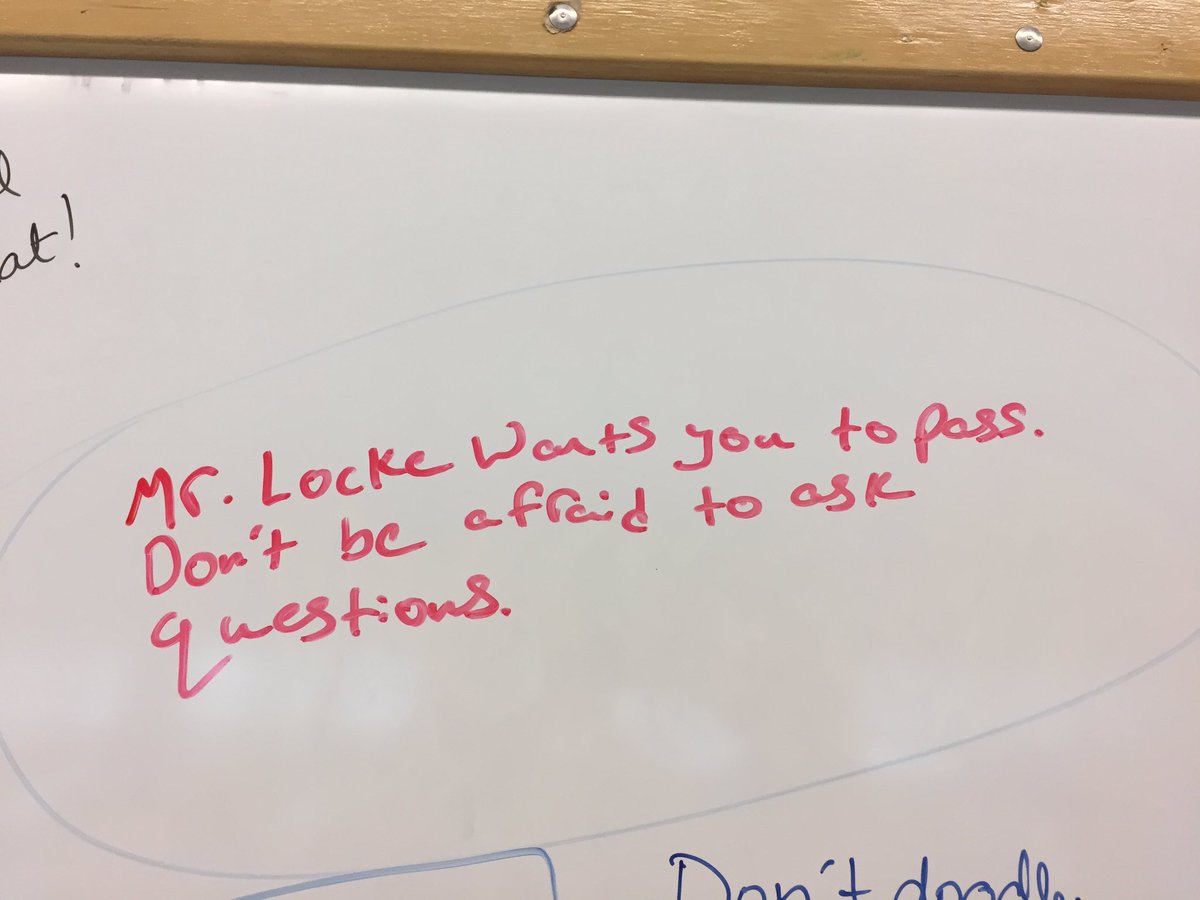 at!
Mr. Locke Wants you to pass.
Don't be afraid to ask
questions.
Don't